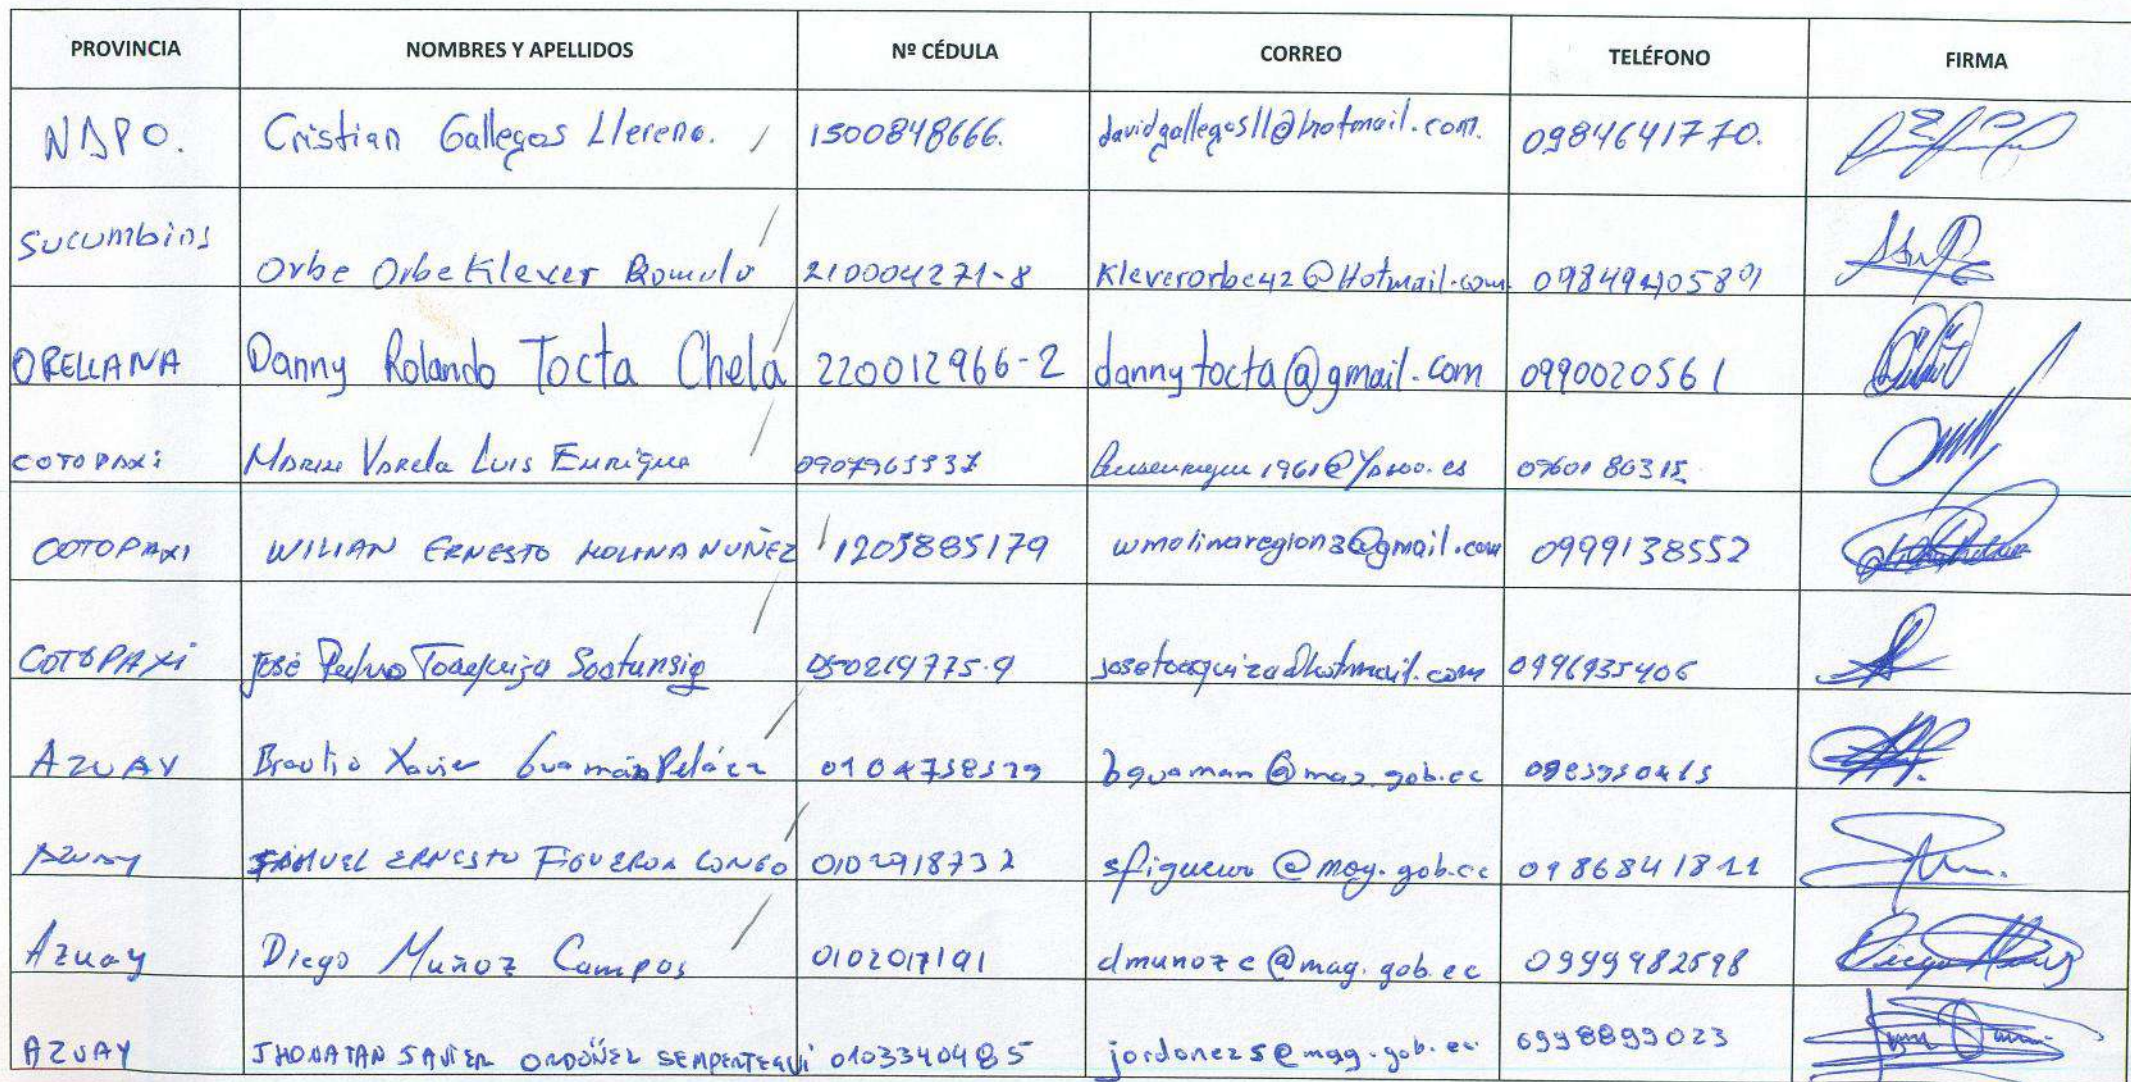 PROVINCIA NOMBRES Y APELLIDOS Nº CÉDULA CORREO TELÉFONO FIRMA
NAPO. Cristian Gallegos Llerena. 1500848666. davidgallegosll@hotmail.com. 0984641770.
Sucumbios Orbe Orbe Klever Romulo 210004271-8 Kleverorbe42@Hotmail.com
ORELLANA Danny Rolando Tocta Chela 220012966-2 dannytocta@gmail.com 0990020561
COTOPAXi Varela Luis Enrique 0960180315
COTOPAXI WILIAN ERNESTO MOLINA NUÑEZ 1205885179 wmolinaregion3@gmail.com 0999138552
COTOPAXi José Pedro Toaquiza 050219775-9 josetoaquiza@hotmail.com 0996935406
AZUAY Xavier Guamán Peláez bguaman@mag.gob.ec
Azuay SAMUEL ERNESTO FIGUEROA CONGO 0102918732 @mag.gob.ec 0986841822
Azuay Diego Muñoz Campos 0102017191 dmunozc@mag.gob.ec 0999982598
AZUAY JHONATAN ORDÓÑEZ SEMPERTEGUI 0103340485 jordonezs@mag.gob.ec 0998899023